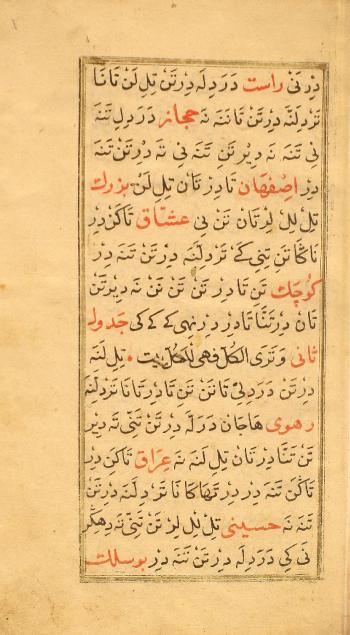 دِرنَیْ راست دَرَدِلَه دِرْتَنْ تِلِ لَنْ تَا نَا
تَرْدِلَنَّه دِرْتَنْ تَا نَنَه نَه حجاز دَرَدِلِ تَنَه
نِی تَنَه نَه دِیرْ تَنْ تَنَه نِی تَه دِرْتَنْ تَنَه
دِرْ اصفهان تَا دِرْ تَانْ تِلِ لَنْ بزرك
تِلِ لِلِ لِرْتَانْ تَنْ نِی عشّاق تَاكَنْ دِرْ
نَاكَا تَنِ تِنِی كَه تَرْدِلَنَه دِرْتَنْ تَنَه دِرْ
كوچك تَنْ تَا دِرْ تَنْ تَنْ تَنْ نَه دِیرْتَنْ
تَانْ دِرْتَنَّا تَا دِرْ دِرْنِهی كه كه كی جدول
ثانی وَتَرَی الكُلَّ فهی للكُلّ بیت تِلِ لَنَه
دِرْتَنْ دَرَدِلِیْ تَا تَنْ تَنِ تَا دِرْ تَا نَا تَرْدِلَنَه
رهوی هَاجَانْ دَرَلَه دِرْتَنْ تَنِّی تَه دِیرْ
تَنْ تَنَّا دِرْتَانْ تِلِ لَنَه نَه عراق تَاكَنْ دِرْ
تَاكَنْ تَنَه دِرْ دِرْ تَهَاكَا نَا تَرْدِلَنَه دِرْتَنْ
تَنَه نَه حسینی تِلِ لِلِ لِرْ تَنْ تَنِّی تَه
نَی كِی دَرَدِلَه دِرْتَنْ تَنَه دِرْ بوسلك